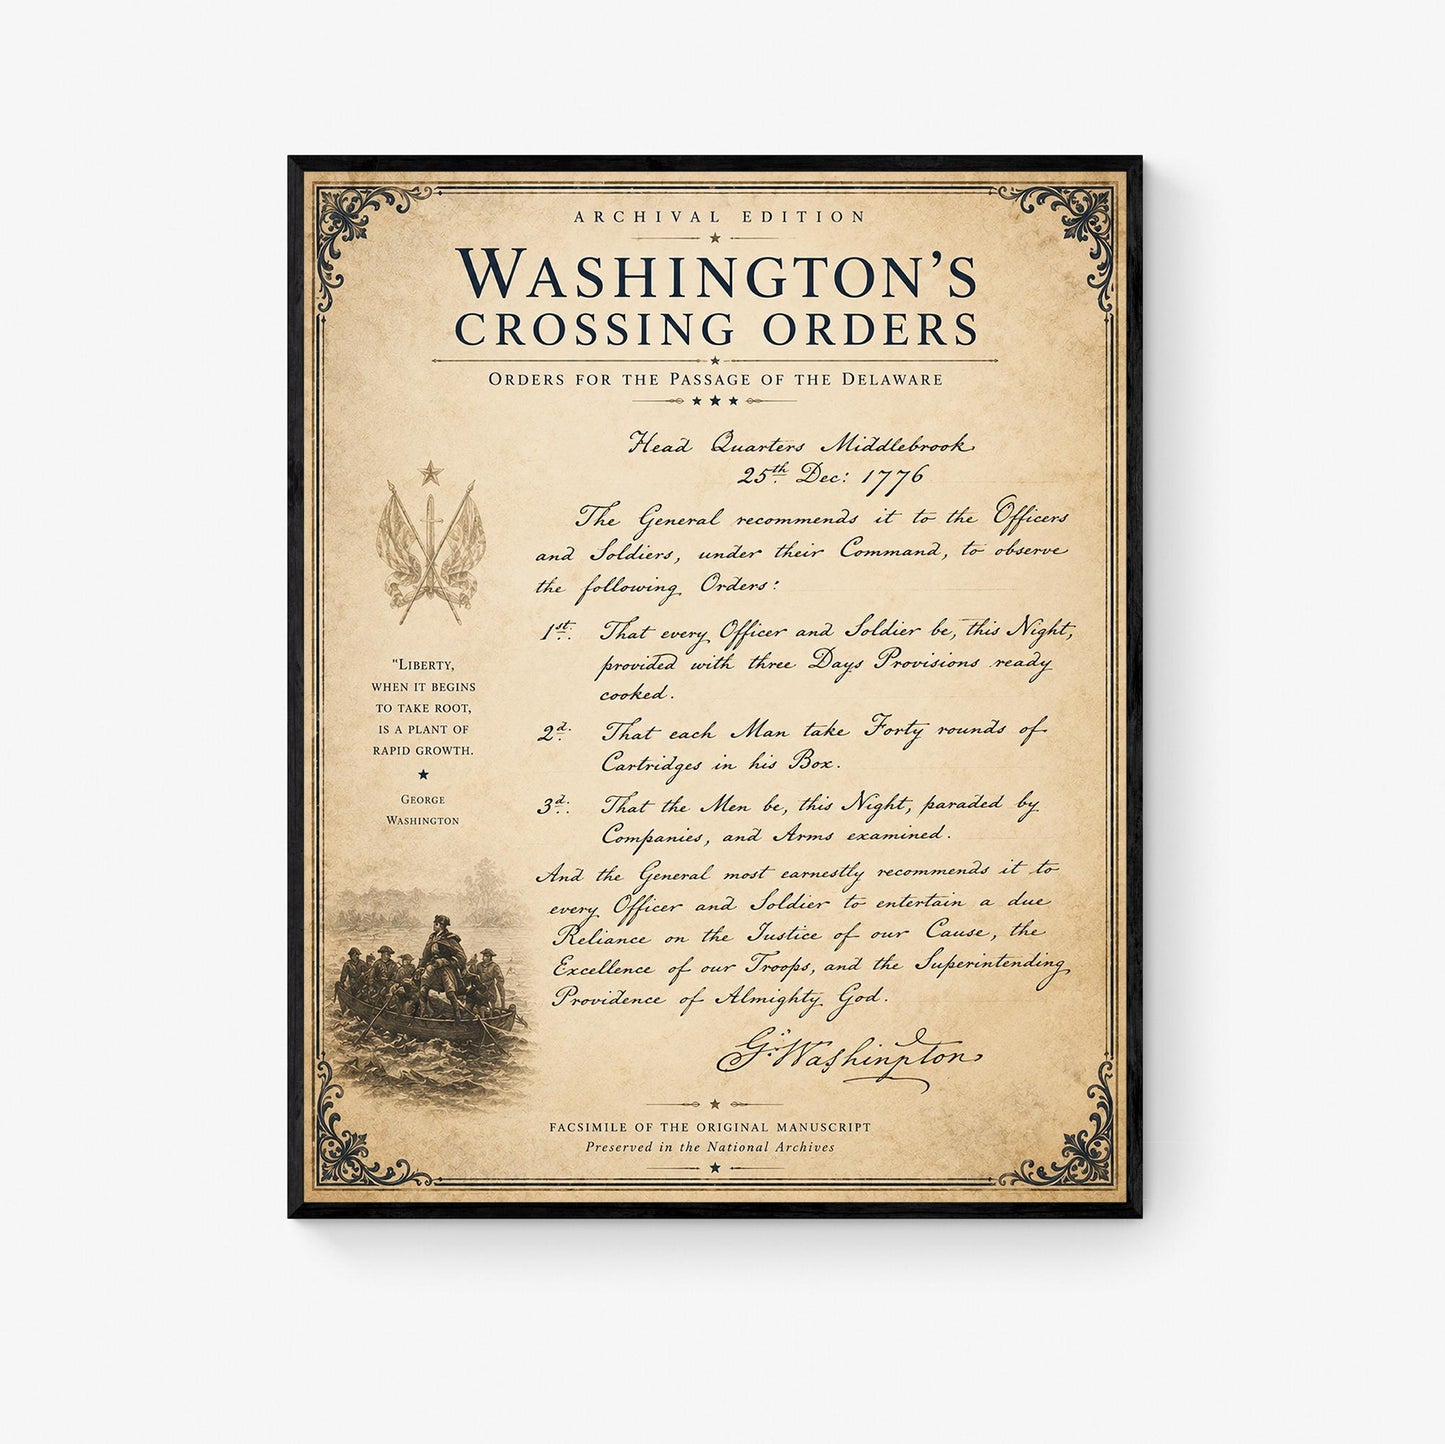 ARCHIVAL EDITION
WASHINGTON'S
CROSSING ORDERS
ORDERS FOR THE PASSAGE OF THE DELAWARE
Head Quarters Middlebrook
25th Dec: 1776
The General recommends it to the Officers
and Soldiers, under their Command, to observe
the following Orders:
1st. That every Officer and Soldier be, this Night,
provided with three Days Provisions ready
cooked.
2d. That each Man take Forty rounds of
Cartridges in his Box.
3d. That the Men be, this Night, paraded by
Companies, and Arms examined.
And the General most earnestly recommends it to
every Officer and Soldier to entertain a due
Reliance on the Justice of our Cause, the
Excellence of our Troops, and the Superintending
Providence of Almighty God.
Go: Washinpton
"LIBERTY,
WHEN IT BEGINS
TO TAKE ROOT,
IS A PLANT OF
RAPID GROWTH.
GEORGE
WASHINGTON
FACSIMILE OF THE ORIGINAL MANUSCRIPT
Preserved in the National Archives